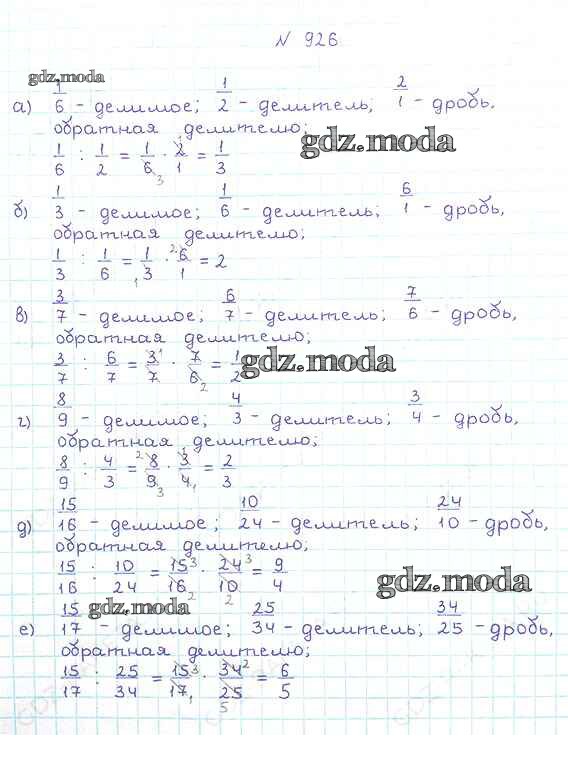 N 926
gdz.moda
а) 1/6 - делимое; 1/2 - делитель; 2/1 - дробь,
обратная делителю;
gdz.moda
1/6 : 1/2 = 1/6 · 2/1 = 1/3
б) 1/3 - делимое; 1/6 - делитель; 6/1 - дробь,
обратная делителю;
1/3 : 1/6 = 1/3 · 6/1 = 2
в) 3/7 - делимое; 6/7 - делитель; 7/6 - дробь,
обратная делителю;
3/7 : 6/7 = 3/7 · 7/6 = 1/2
gdz.moda
г) 8/9 - делимое; 4/3 - делитель; 3/4 - дробь,
обратная делителю;
8/9 : 4/3 = 8/9 · 3/4 = 2/3
д) 15/16 - делимое; 10/24 - делитель; 24/10 - дробь,
обратная делителю;
15/16 : 10/24 = 15/16 · 24/10 = 9/4
gdz.moda
gdz.moda
е) 15/17 - делимое; 25/34 - делитель; 34/25 - дробь,
обратная делителю;
15/17 : 25/34 = 15/17 · 34/25 = 6/5